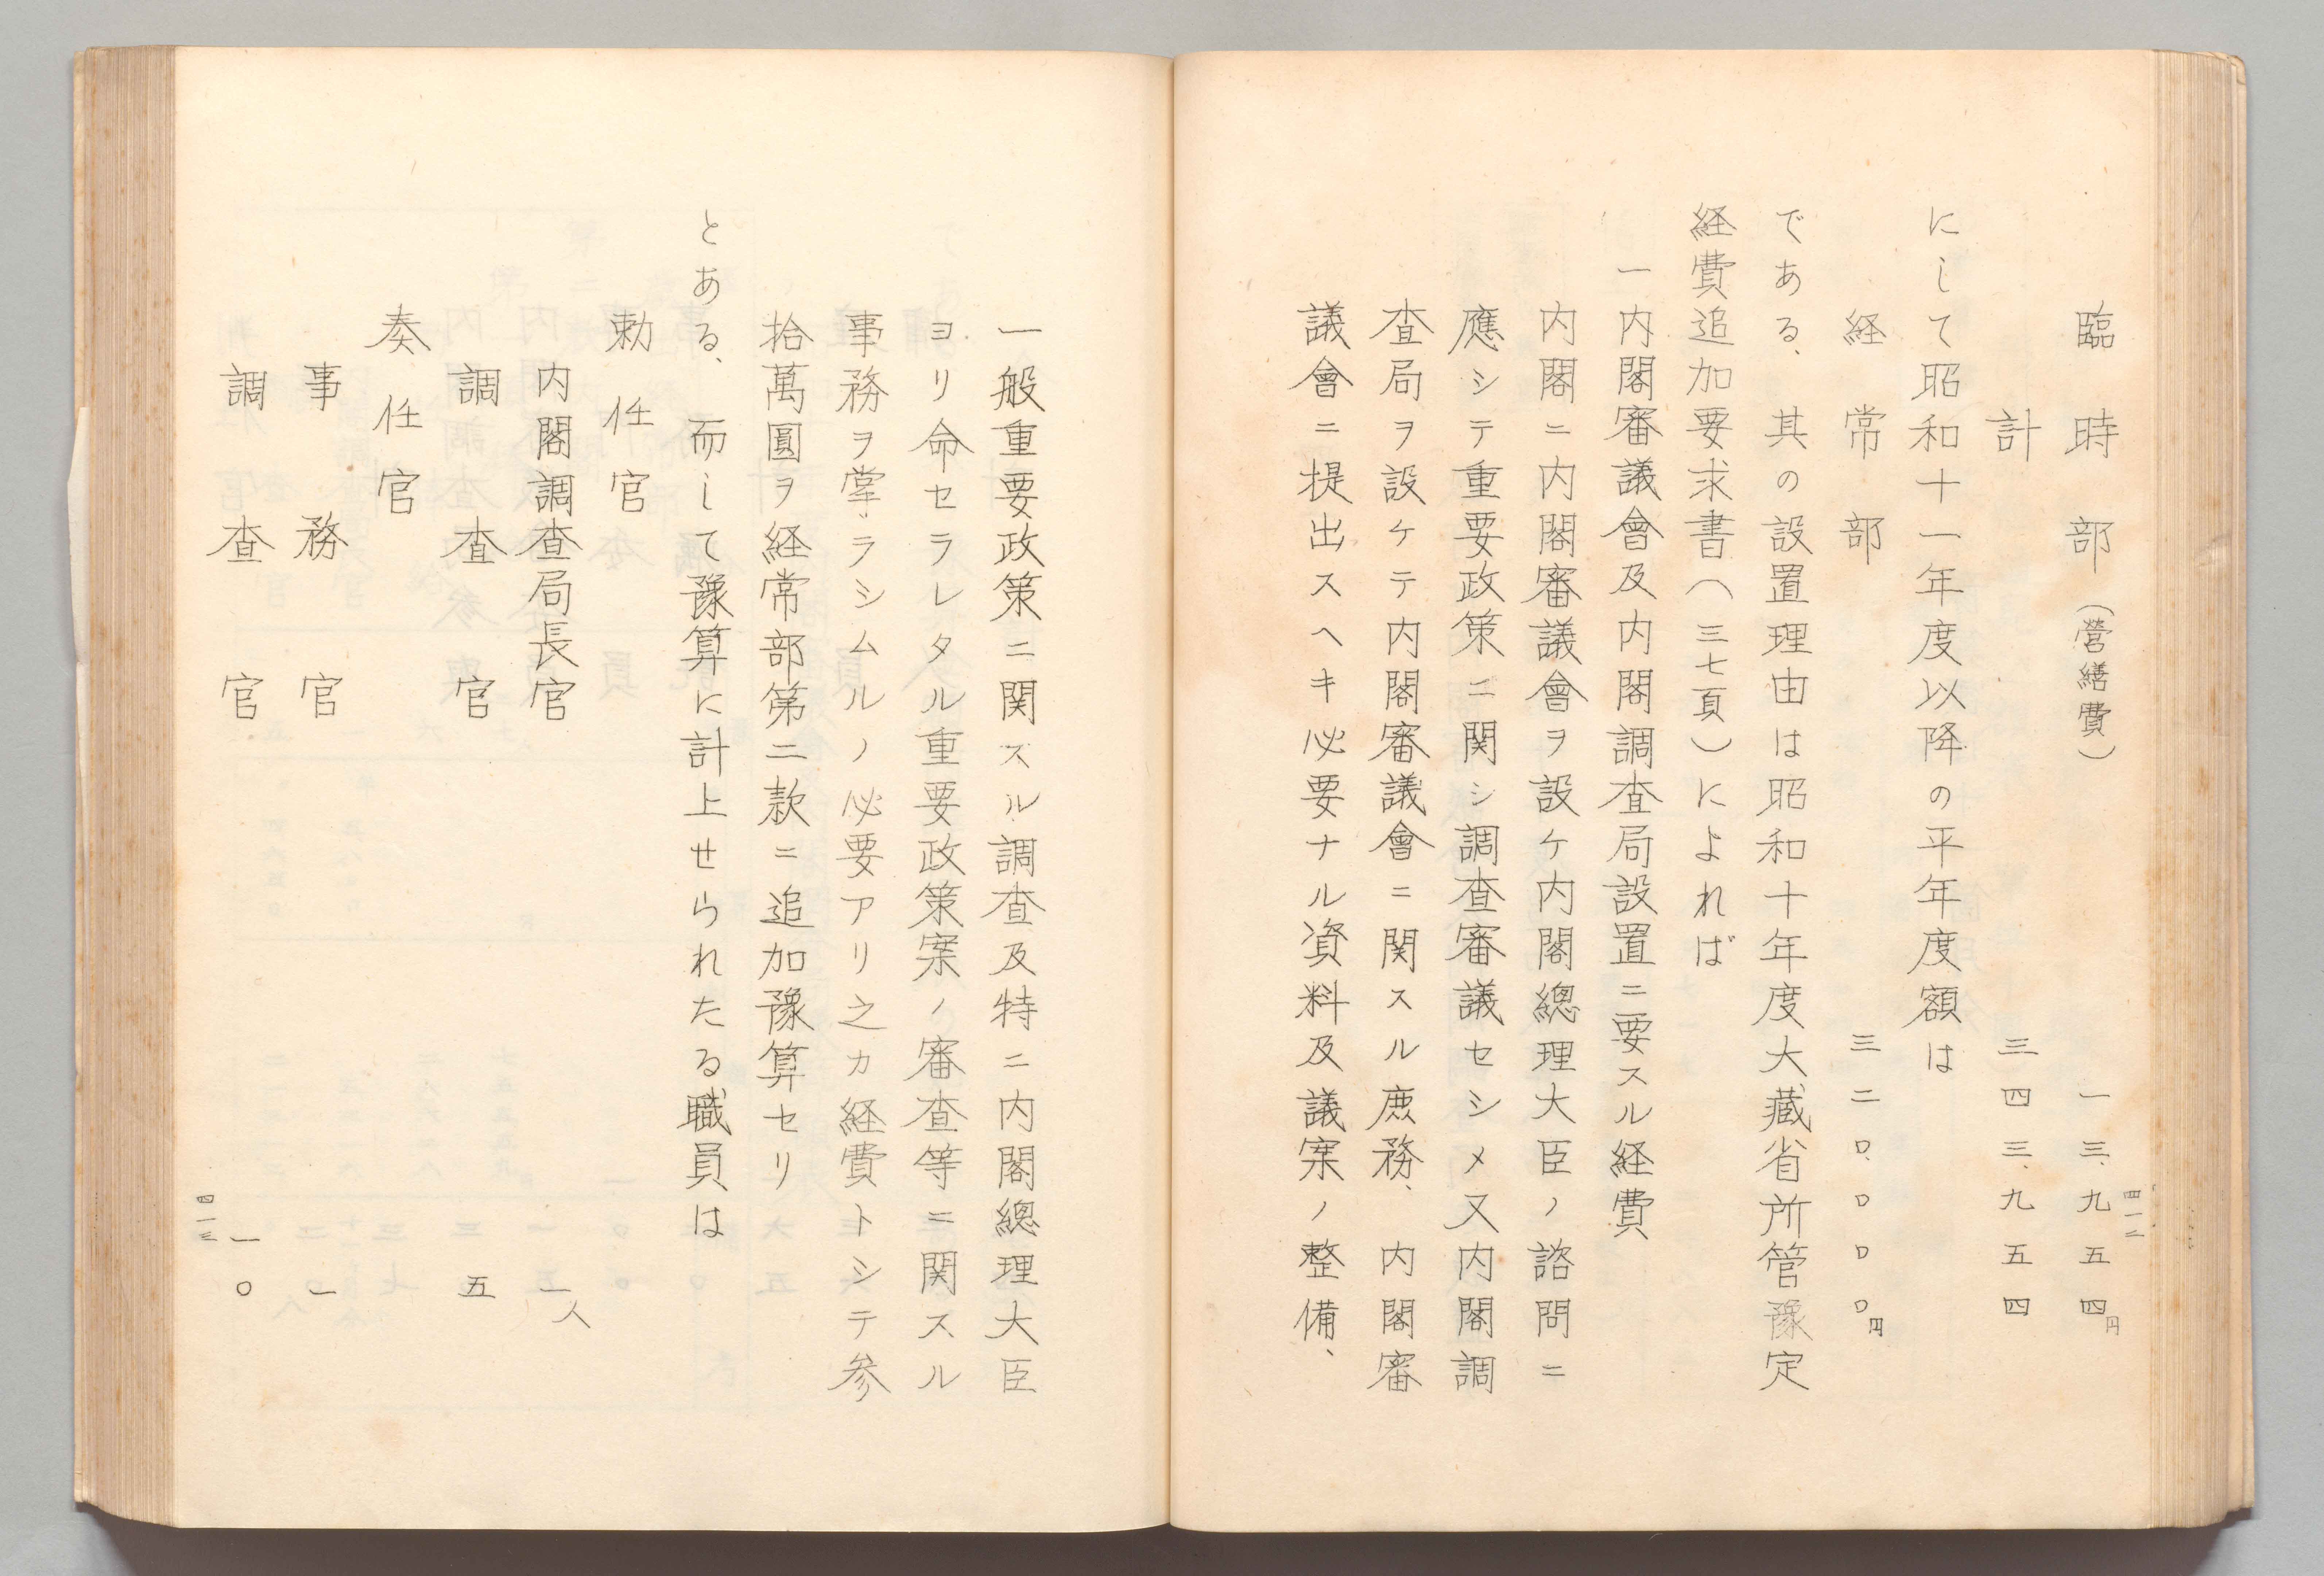 臨時部（営繕費）　一三、九五四円
計　三四三、九五四
にして昭和十一年度以降の平年度額は
経常部　三二〇、〇〇〇円
である、其の設置理由は昭和十年度大藏省所管豫定
経費追加要求書（三七頁）によれば
一内閣審議會及内閣調査局設置ニ要スル経費
内閣ニ内閣審議會ヲ設ケ内閣總理大臣ノ諮問ニ
應シテ重要政策ニ関シ調査審議セシメ又内閣調
査局ヲ設ケテ内閣審議會ニ関スル庶務、内閣審
議會ニ提出スヘキ必要ナル資料及議案ノ整備、
四一二
一般重要政策ニ関スル調査及特ニ内閣總理大臣
ヨリ命セラレタル重要政策案ノ審査等ニ関スル
事務ヲ掌ラシムルノ必要アリ之カ経費トシテ参
拾萬圓ヲ経常部第二款ニ追加豫算セリ
とある、而して豫算に計上せられたる職員は
勅任官
内閣調査局長官　一人
調査官　五
奏任官
事務官　一
調査官　一〇
四一三